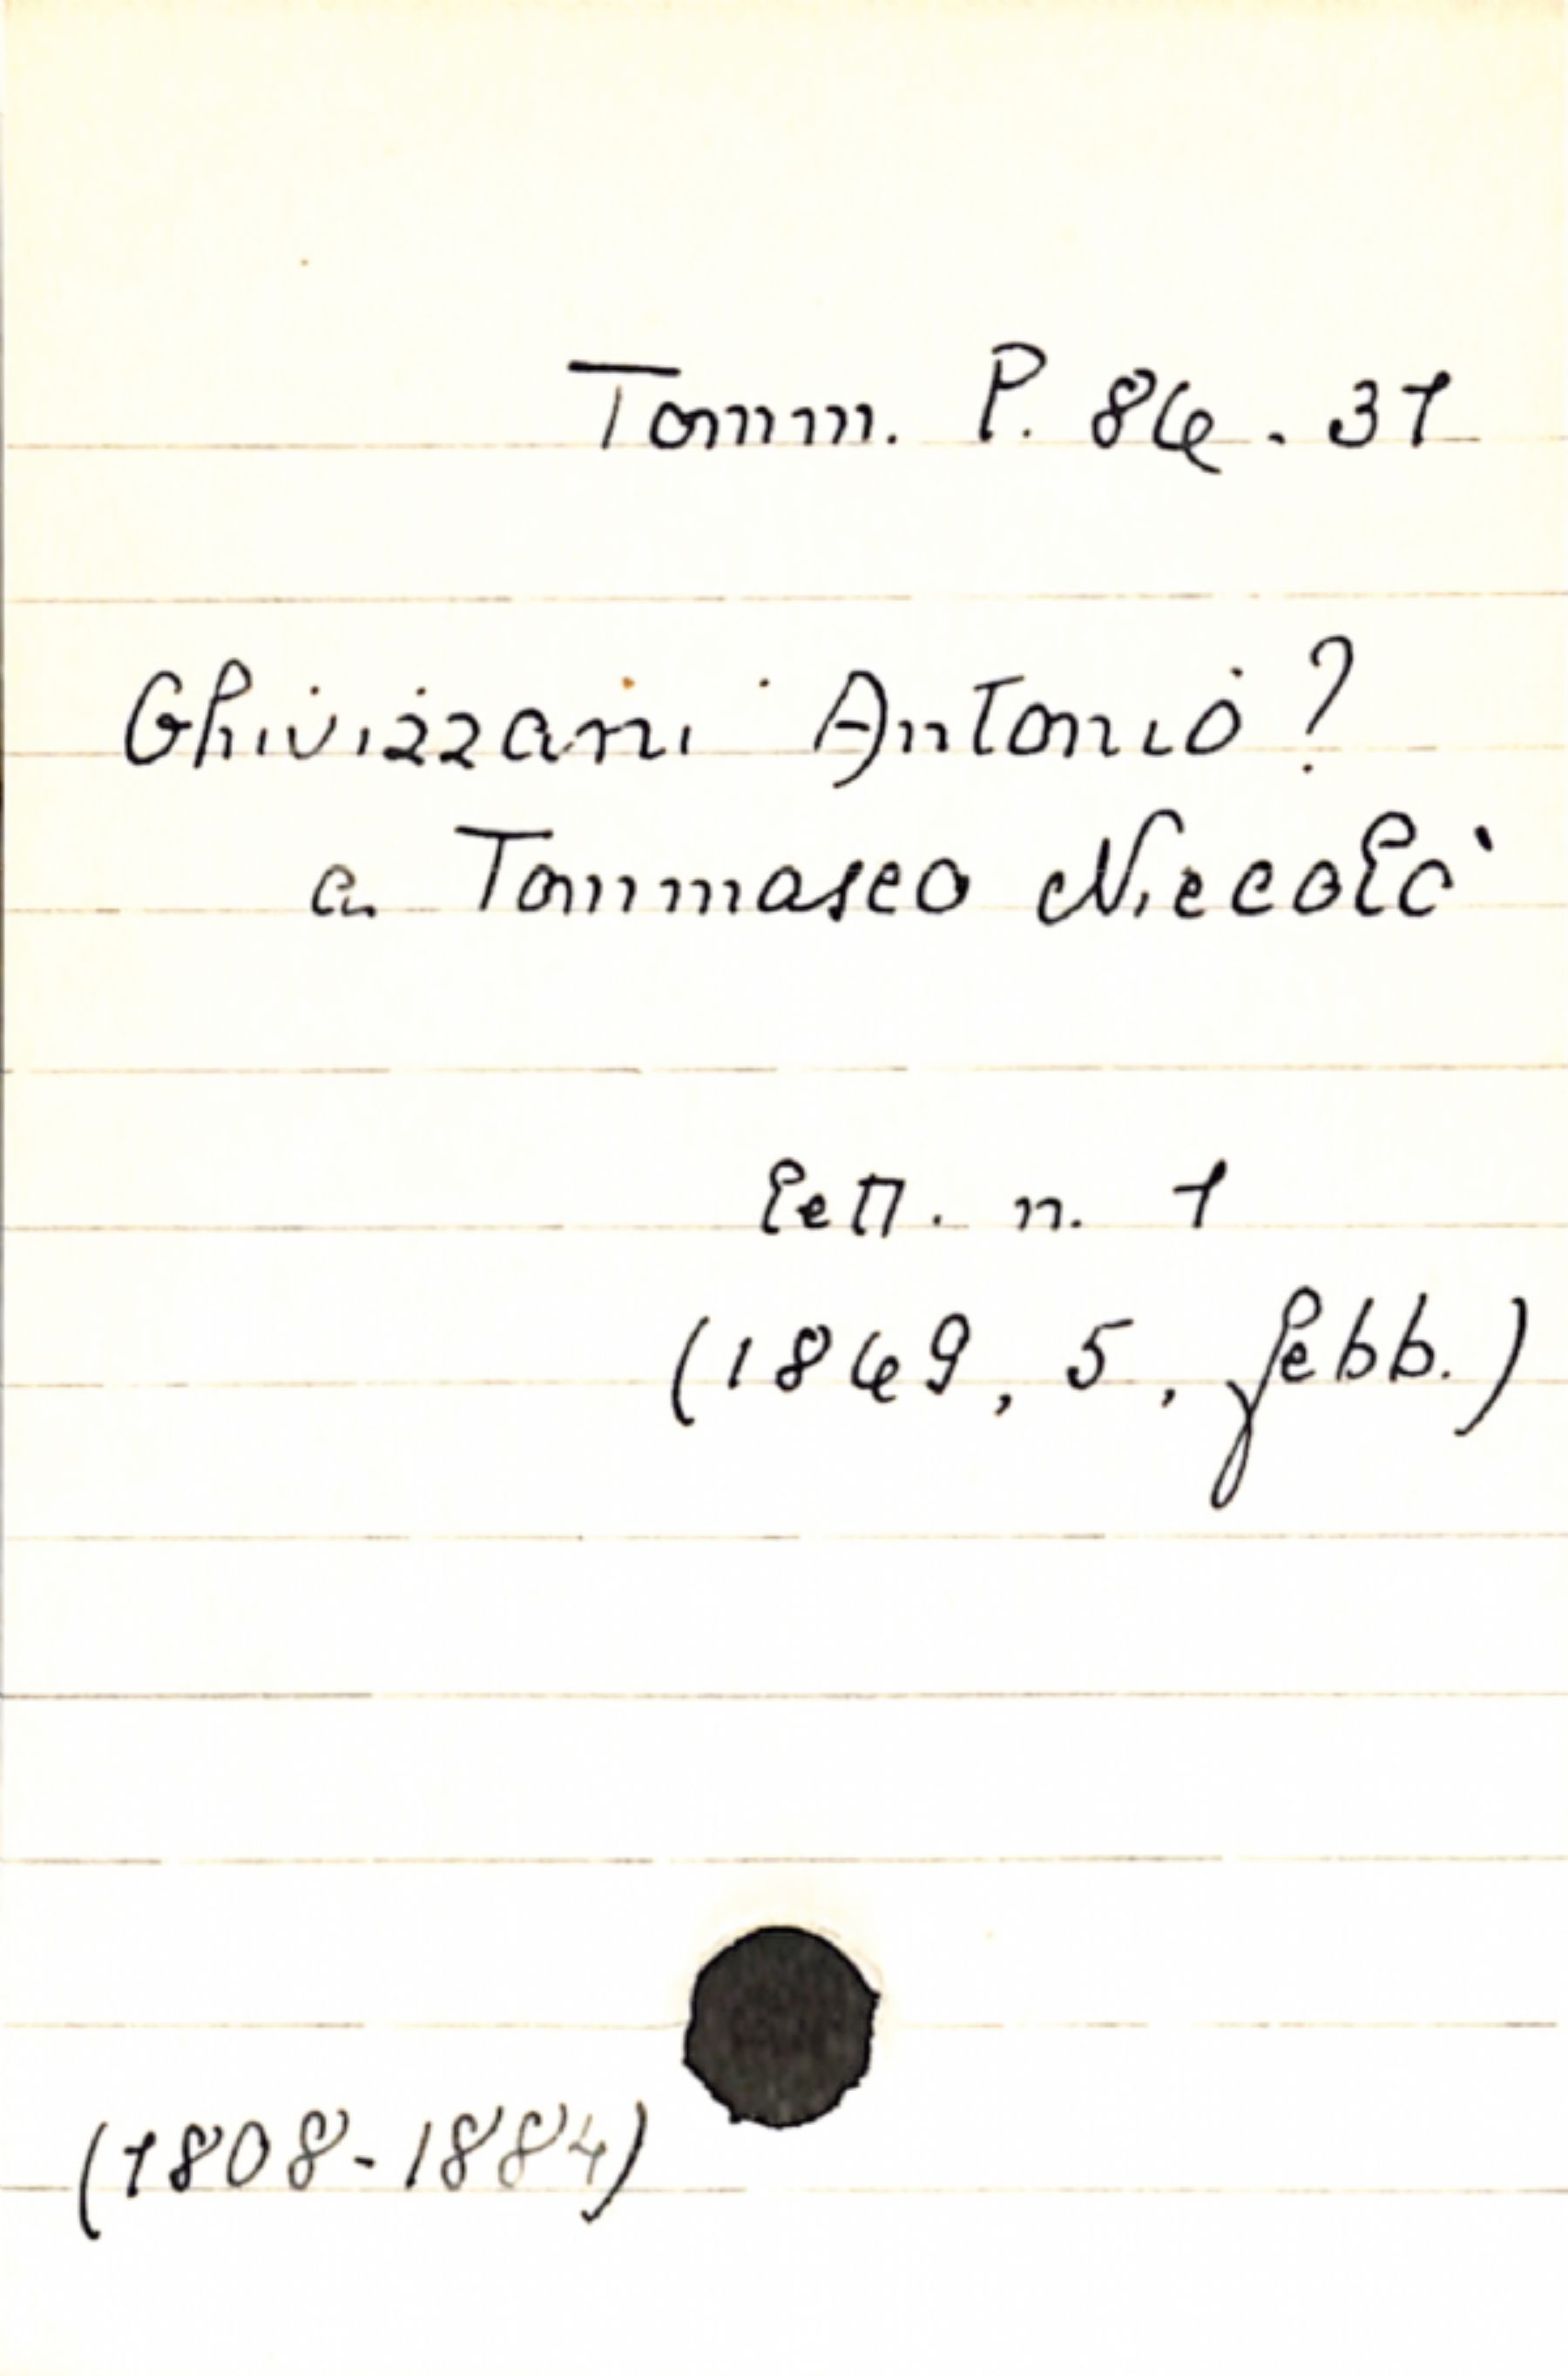 Tomm. P. 84. 31
Ghivizzani Antonio?
a Tommaseo Niccolò
lett. n. 1
(1849, 5, febb.)
(1808-1884)